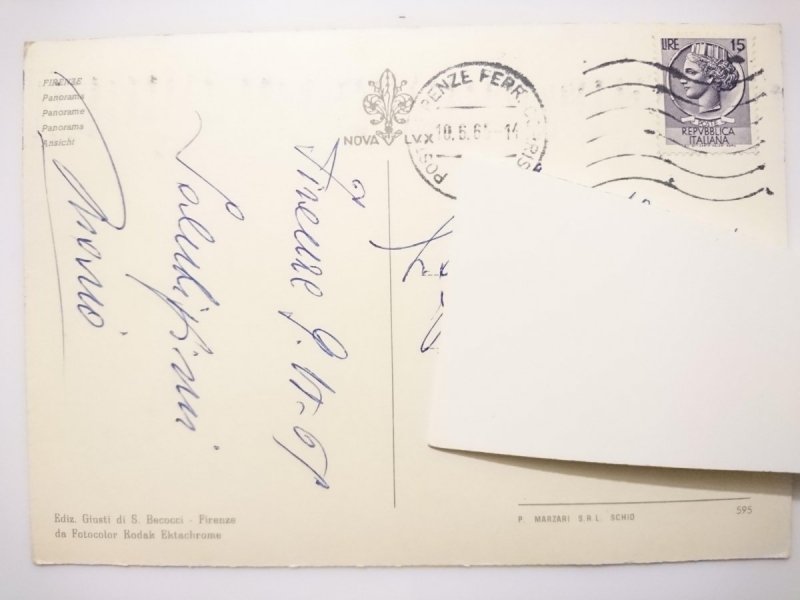 FIRENZE
Panorama
Panorame
Panorama
Ansicht
NOVA LVX
FERR.
10.6.6
14
LIRE 15
POSTE
REPVBBLICA
ITALIANA
Firenze 9.
Salutissimi
Ediz. Giusti di S. Becocci - Firenze
da Fotocolor Kodak Ektachrome
P. MARZARI S.R.L. SCHIO
595